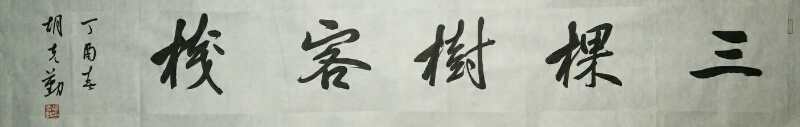 三棵樹客棧
丁酉春
胡克勤